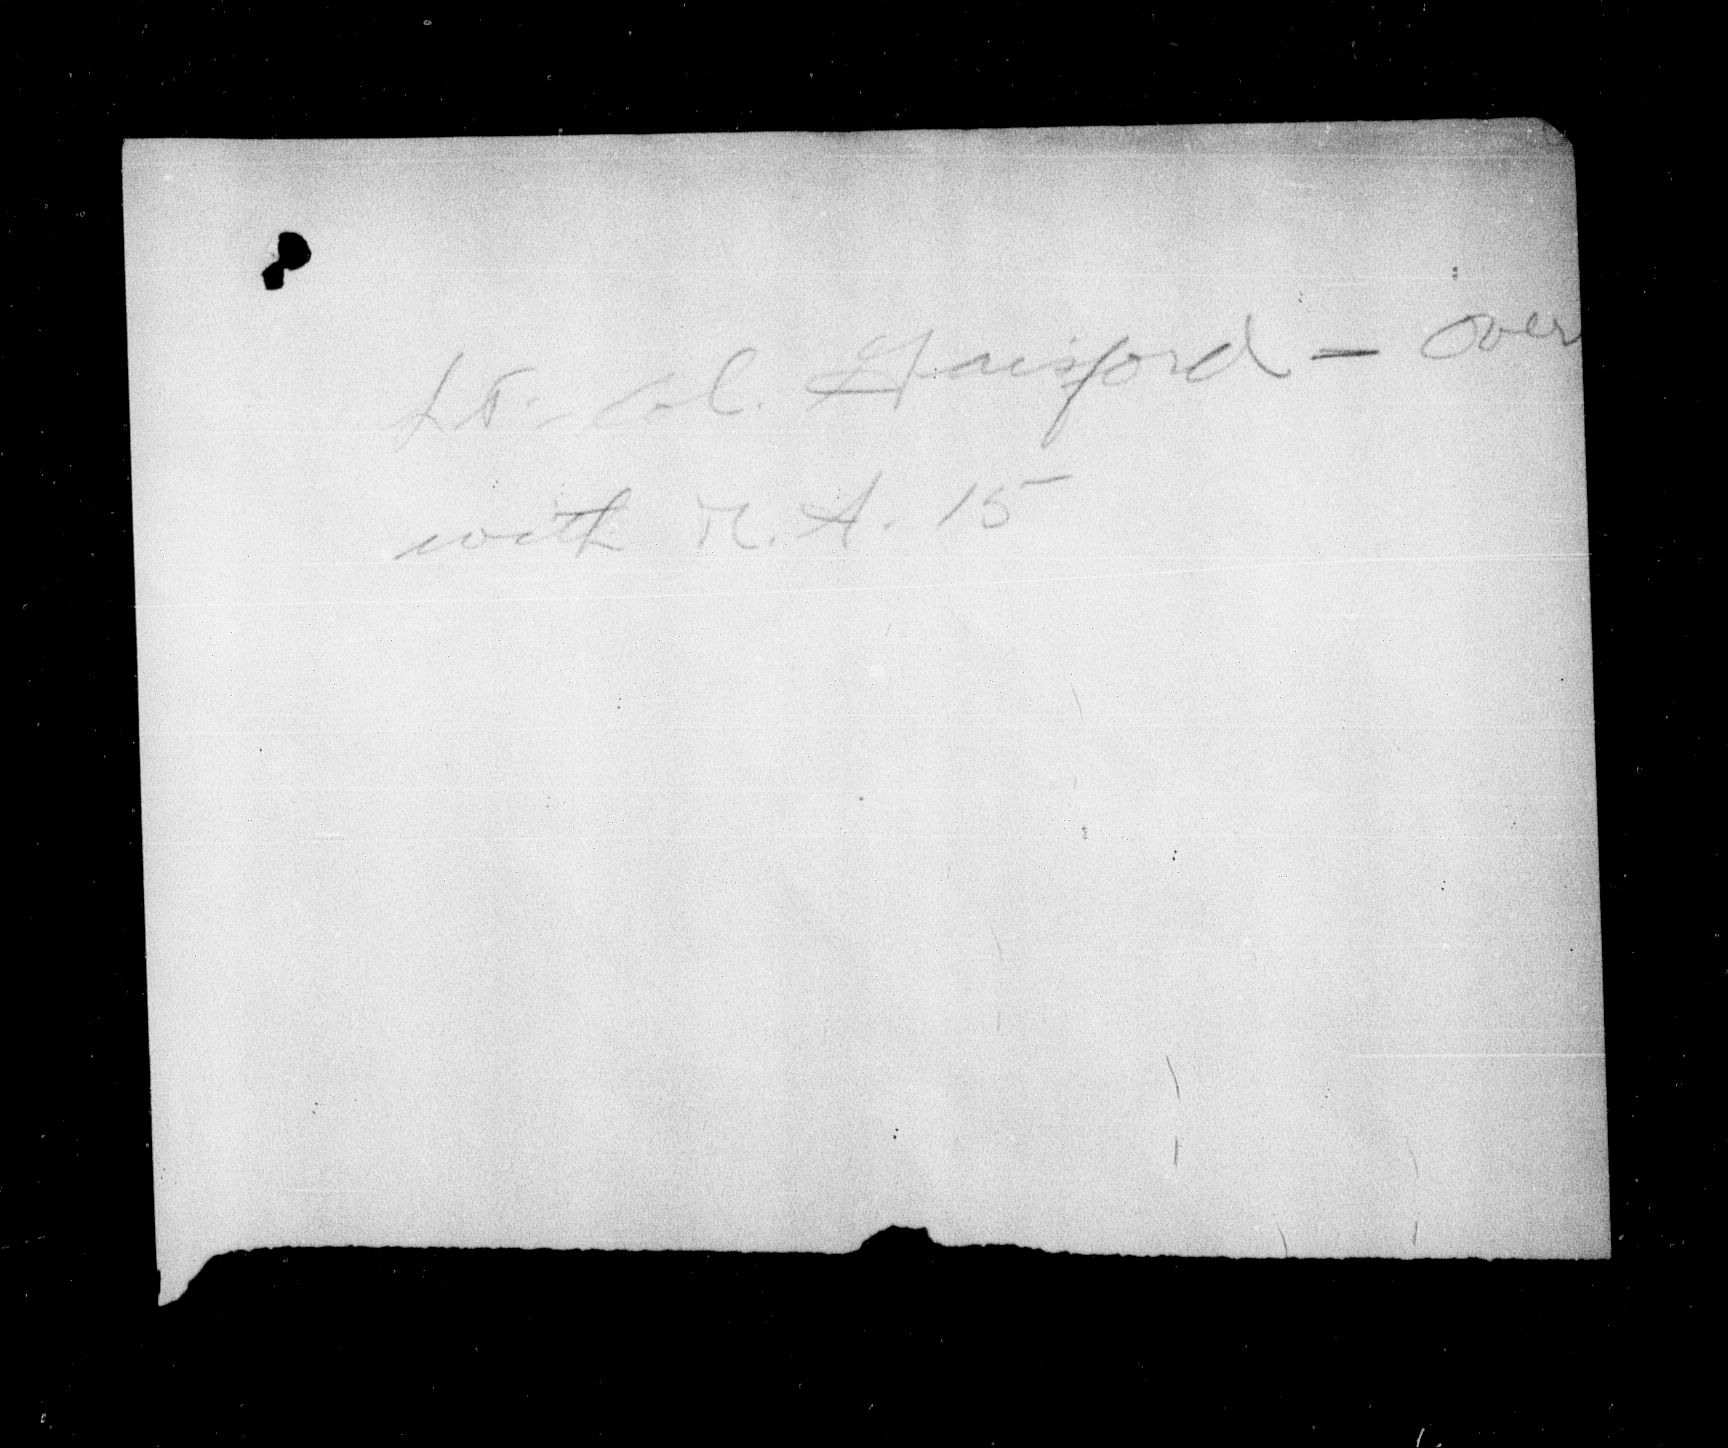 Lt. Col. Gaisford — Over
with R.A. 15